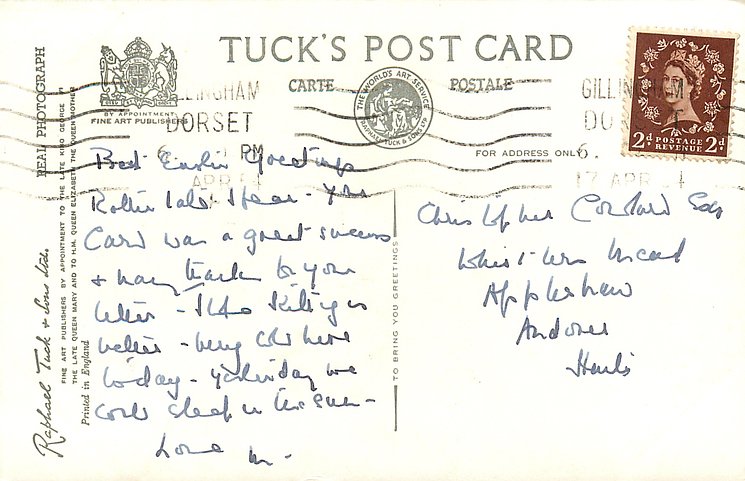 TUCK'S POST CARD
CARTE POSTALE
BY APPOINTMENT
FINE ART PUBLISHERS
THE WORLD'S ART SERVICE
RAPHAEL TUCK & SONS LTD
GILLINGHAM
DORSET
6. PM
APR
GILLINGHAM
DORSET
6.
17 APR 4
2d POSTAGE REVENUE 2d
FOR ADDRESS ONLY
REAL PHOTOGRAPH
Raphael Tuck & Sons Ltd.
FINE ART PUBLISHERS BY APPOINTMENT TO THE LATE KING GEORGE VI
THE LATE QUEEN MARY AND TO H.M. QUEEN ELIZABETH THE QUEEN MOTHER
Printed in England
TO BRING YOU GREETINGS
Best Easter Greetings
Rather late I fear - your
Card was a great success
& many thanks for your
letter -
better - very cold here
today - yesterday we
could sleep in the sun -
Love M -
Christopher Esq
Mead
Appleshaw
Andover
Hants